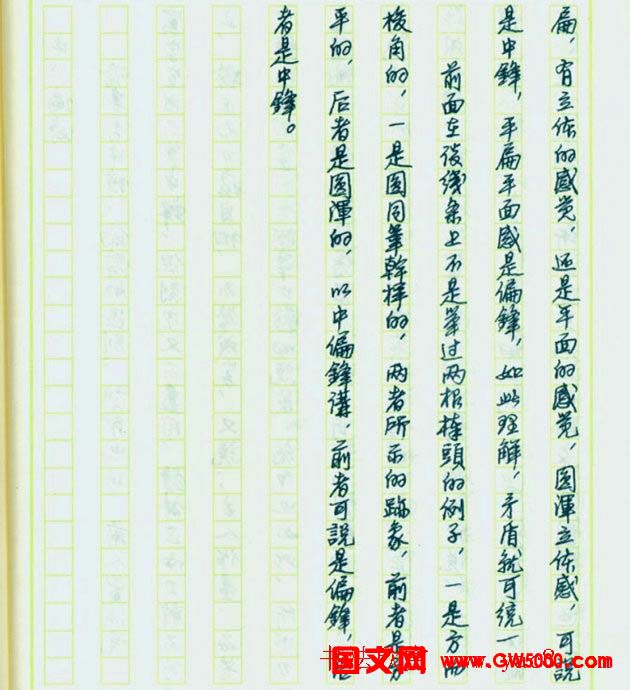 扁，有立体的感觉，还是平面的感觉，圆渾立体感，可說
是中鋒，平扁平面感是偏鋒，如此理解，矛盾就可统一
前面在谈线条上不是举过两根棒頭的例子，一是方而
梭角的，一是圆同筆幹様的，两者所示的跡象，前者是方
平的，后者是圆渾的，以中偏鋒講，前者可說是偏鋒，
者是中鋒。
国文网 www.GW5000.com